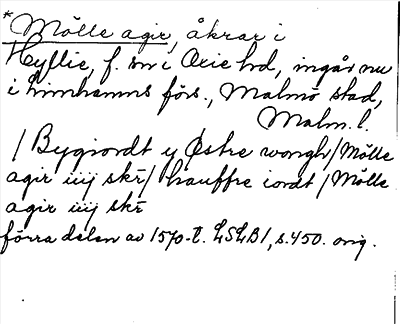 *Mölle agir, åkrar i
Hyllie, f. sn i Oxie hd, ingår nu
i Limhamns förs., Malmö stad,
Malm. l.
/ Bygiordt y Østre wongh / Mölle
agir iiij skr / hauffre iordt / Mölle
agir iiij skr
förra delen av 1570-t. LSLB 1, s. 450. orig.